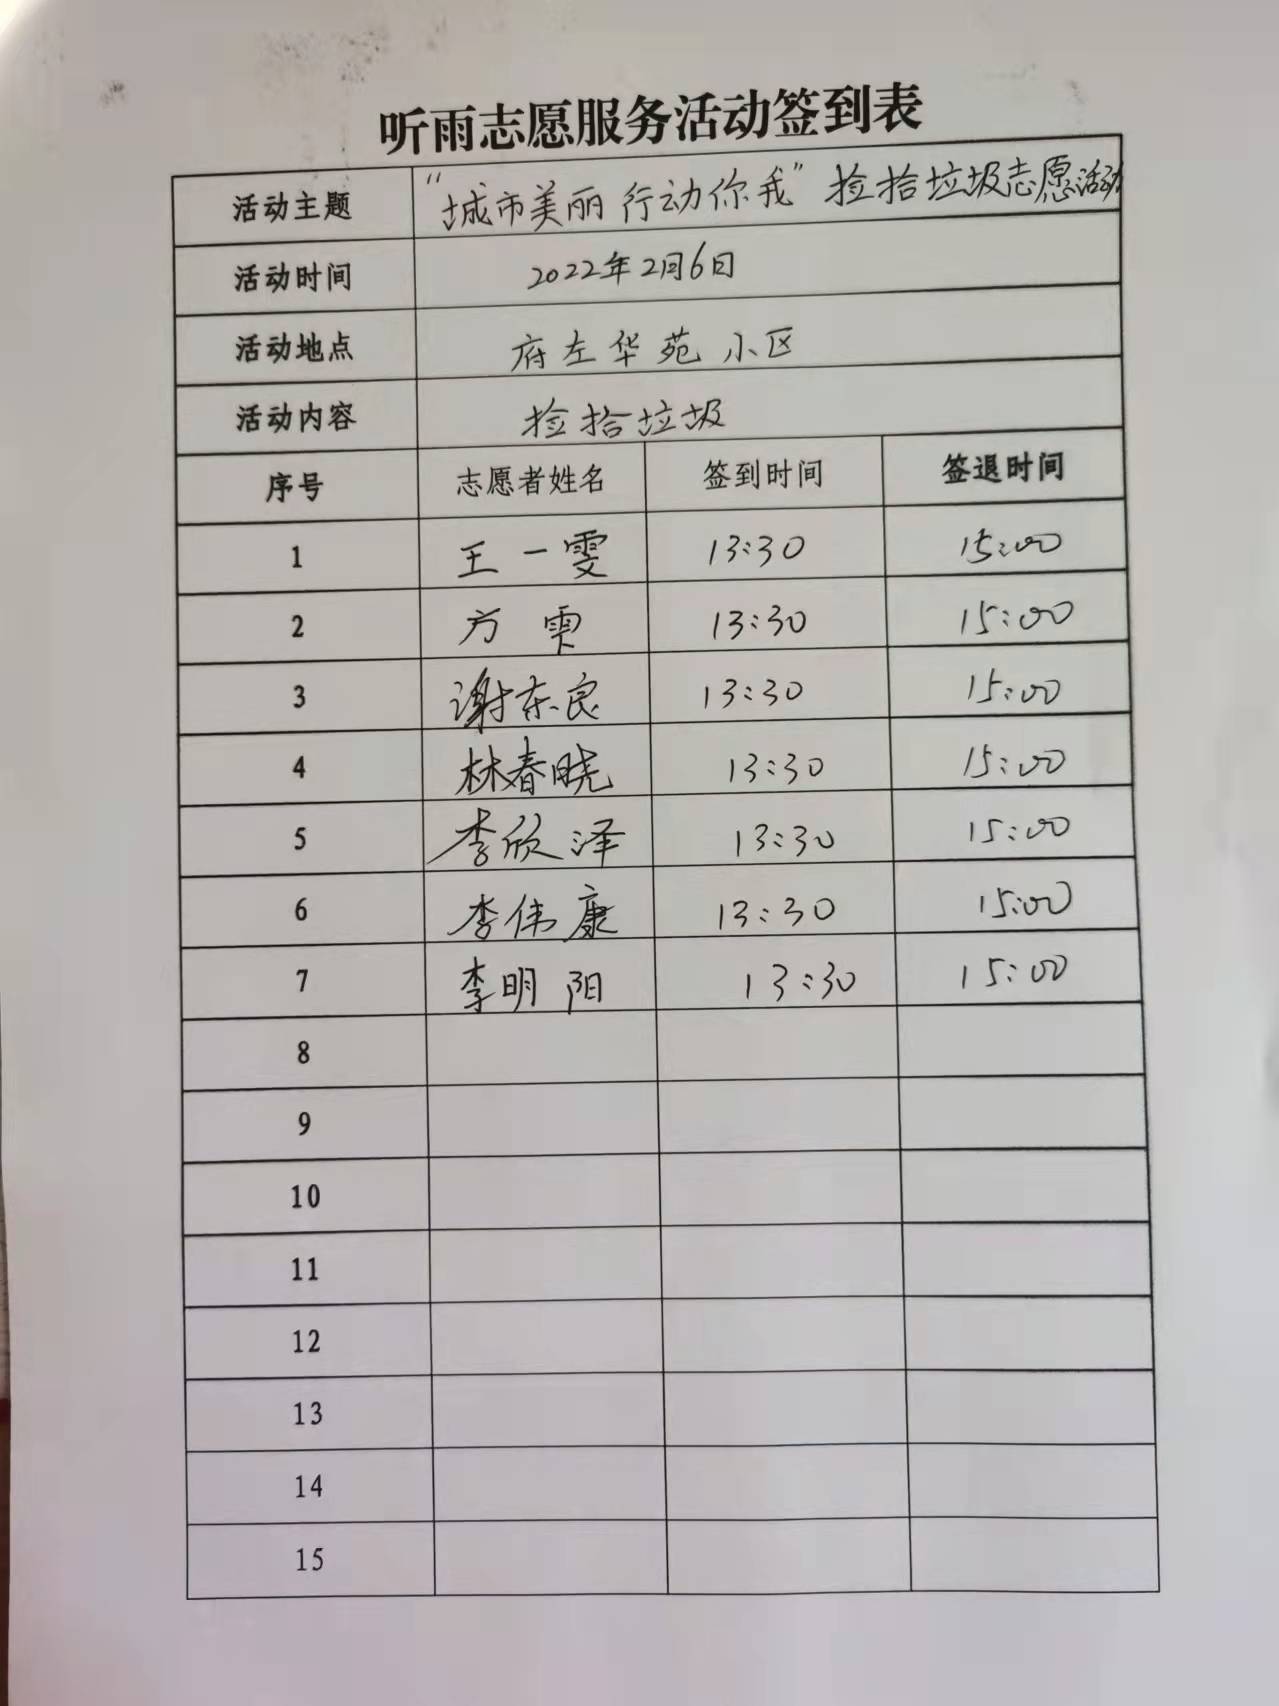 听雨志愿服务活动签到表
活动主题 “城市美丽 行动你我”捡拾垃圾志愿活动
活动时间 2022年2月6日
活动地点 府左华苑小区
活动内容 捡拾垃圾
序号 志愿者姓名 签到时间 签退时间
1 王一雯 13:30 15:00
2 方雫 13:30 15:00
3 谢东良 13:30 15:00
4 林春晓 13:30 15:00
5 李欣泽 13:30 15:00
6 李伟康 13:30 15:00
7 李明阳 13:30 15:00
8
9
10
11
12
13
14
15